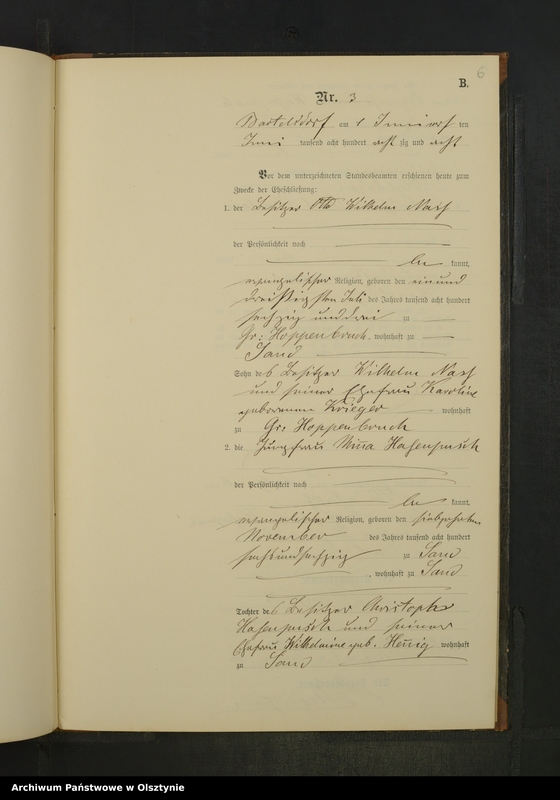 6
B.
Nr. 3
Bartelsdorf am
Juni tausend acht hundert acht zig und acht
Vor dem unterzeichneten Standesbeamten erschienen heute zum
Zwecke der Eheschließung:
1. der Besitzer Otto Wilhelm
der Persönlichkeit nach
kannt,
evangelischer Religion, geboren den ein und
dreißigsten Juli des Jahres tausend acht hundert
sechzig und drei zu
Gr: Hoppenbruch, wohnhaft zu
Sand
Sohn des Besitzer Wilhelm
und seiner Ehefrau Karoline
geborenen Krieger wohnhaft
zu Gr: Hoppenbruch
2. die Jungfrau Mina Hasenpusch
der Persönlichkeit nach
kannt,
evangelischer Religion, geboren den siebzehnten
November des Jahres tausend acht hundert
sechsundsechzig zu Sand
, wohnhaft zu Sand
Tochter des Besitzer Christoph
Hasenpusch und seiner
Ehefrau Wilhelmine geb. Hennig wohnhaft
zu Sand
Archiwum Państwowe w Olsztynie